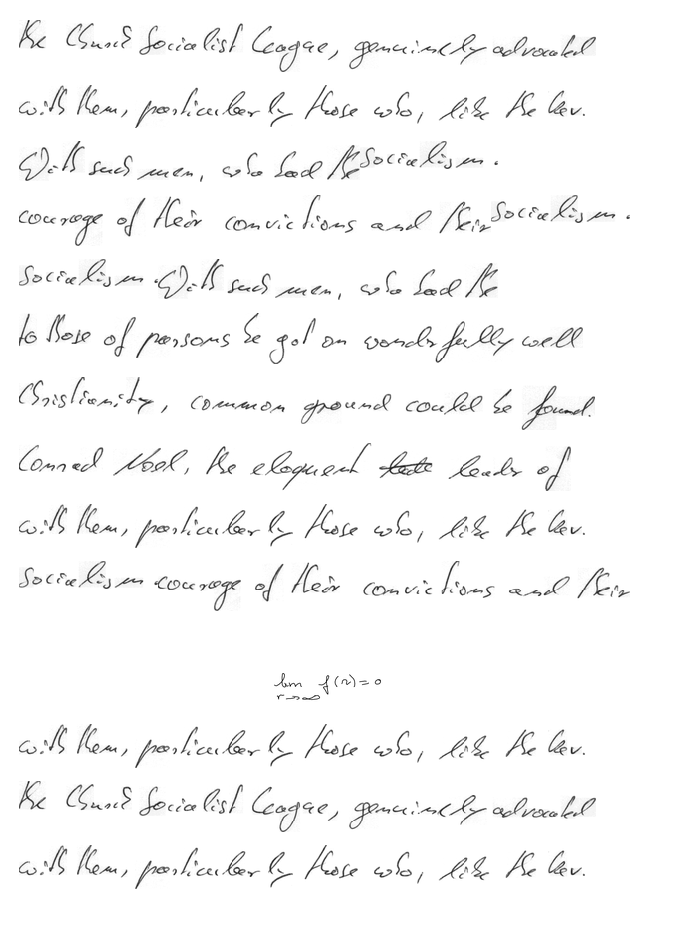 the Church Socialist League, genuinely advocated
with them, particularly those who, like the Rev.
With such men, who had the Socialism.
courage of their convictions and their Socialism.
Socialism. With such men, who had the
to those of persons he got on wonderfully well
Christianity, common ground could be found.
Conrad Noel, the eloquent leader of
with them, particularly those who, like the Rev.
Socialism courage of their convictions and their
lim f(r) = 0
r→∞
with them, particularly those who, like the Rev.
the Church Socialist League, genuinely advocated
with them, particularly those who, like the Rev.